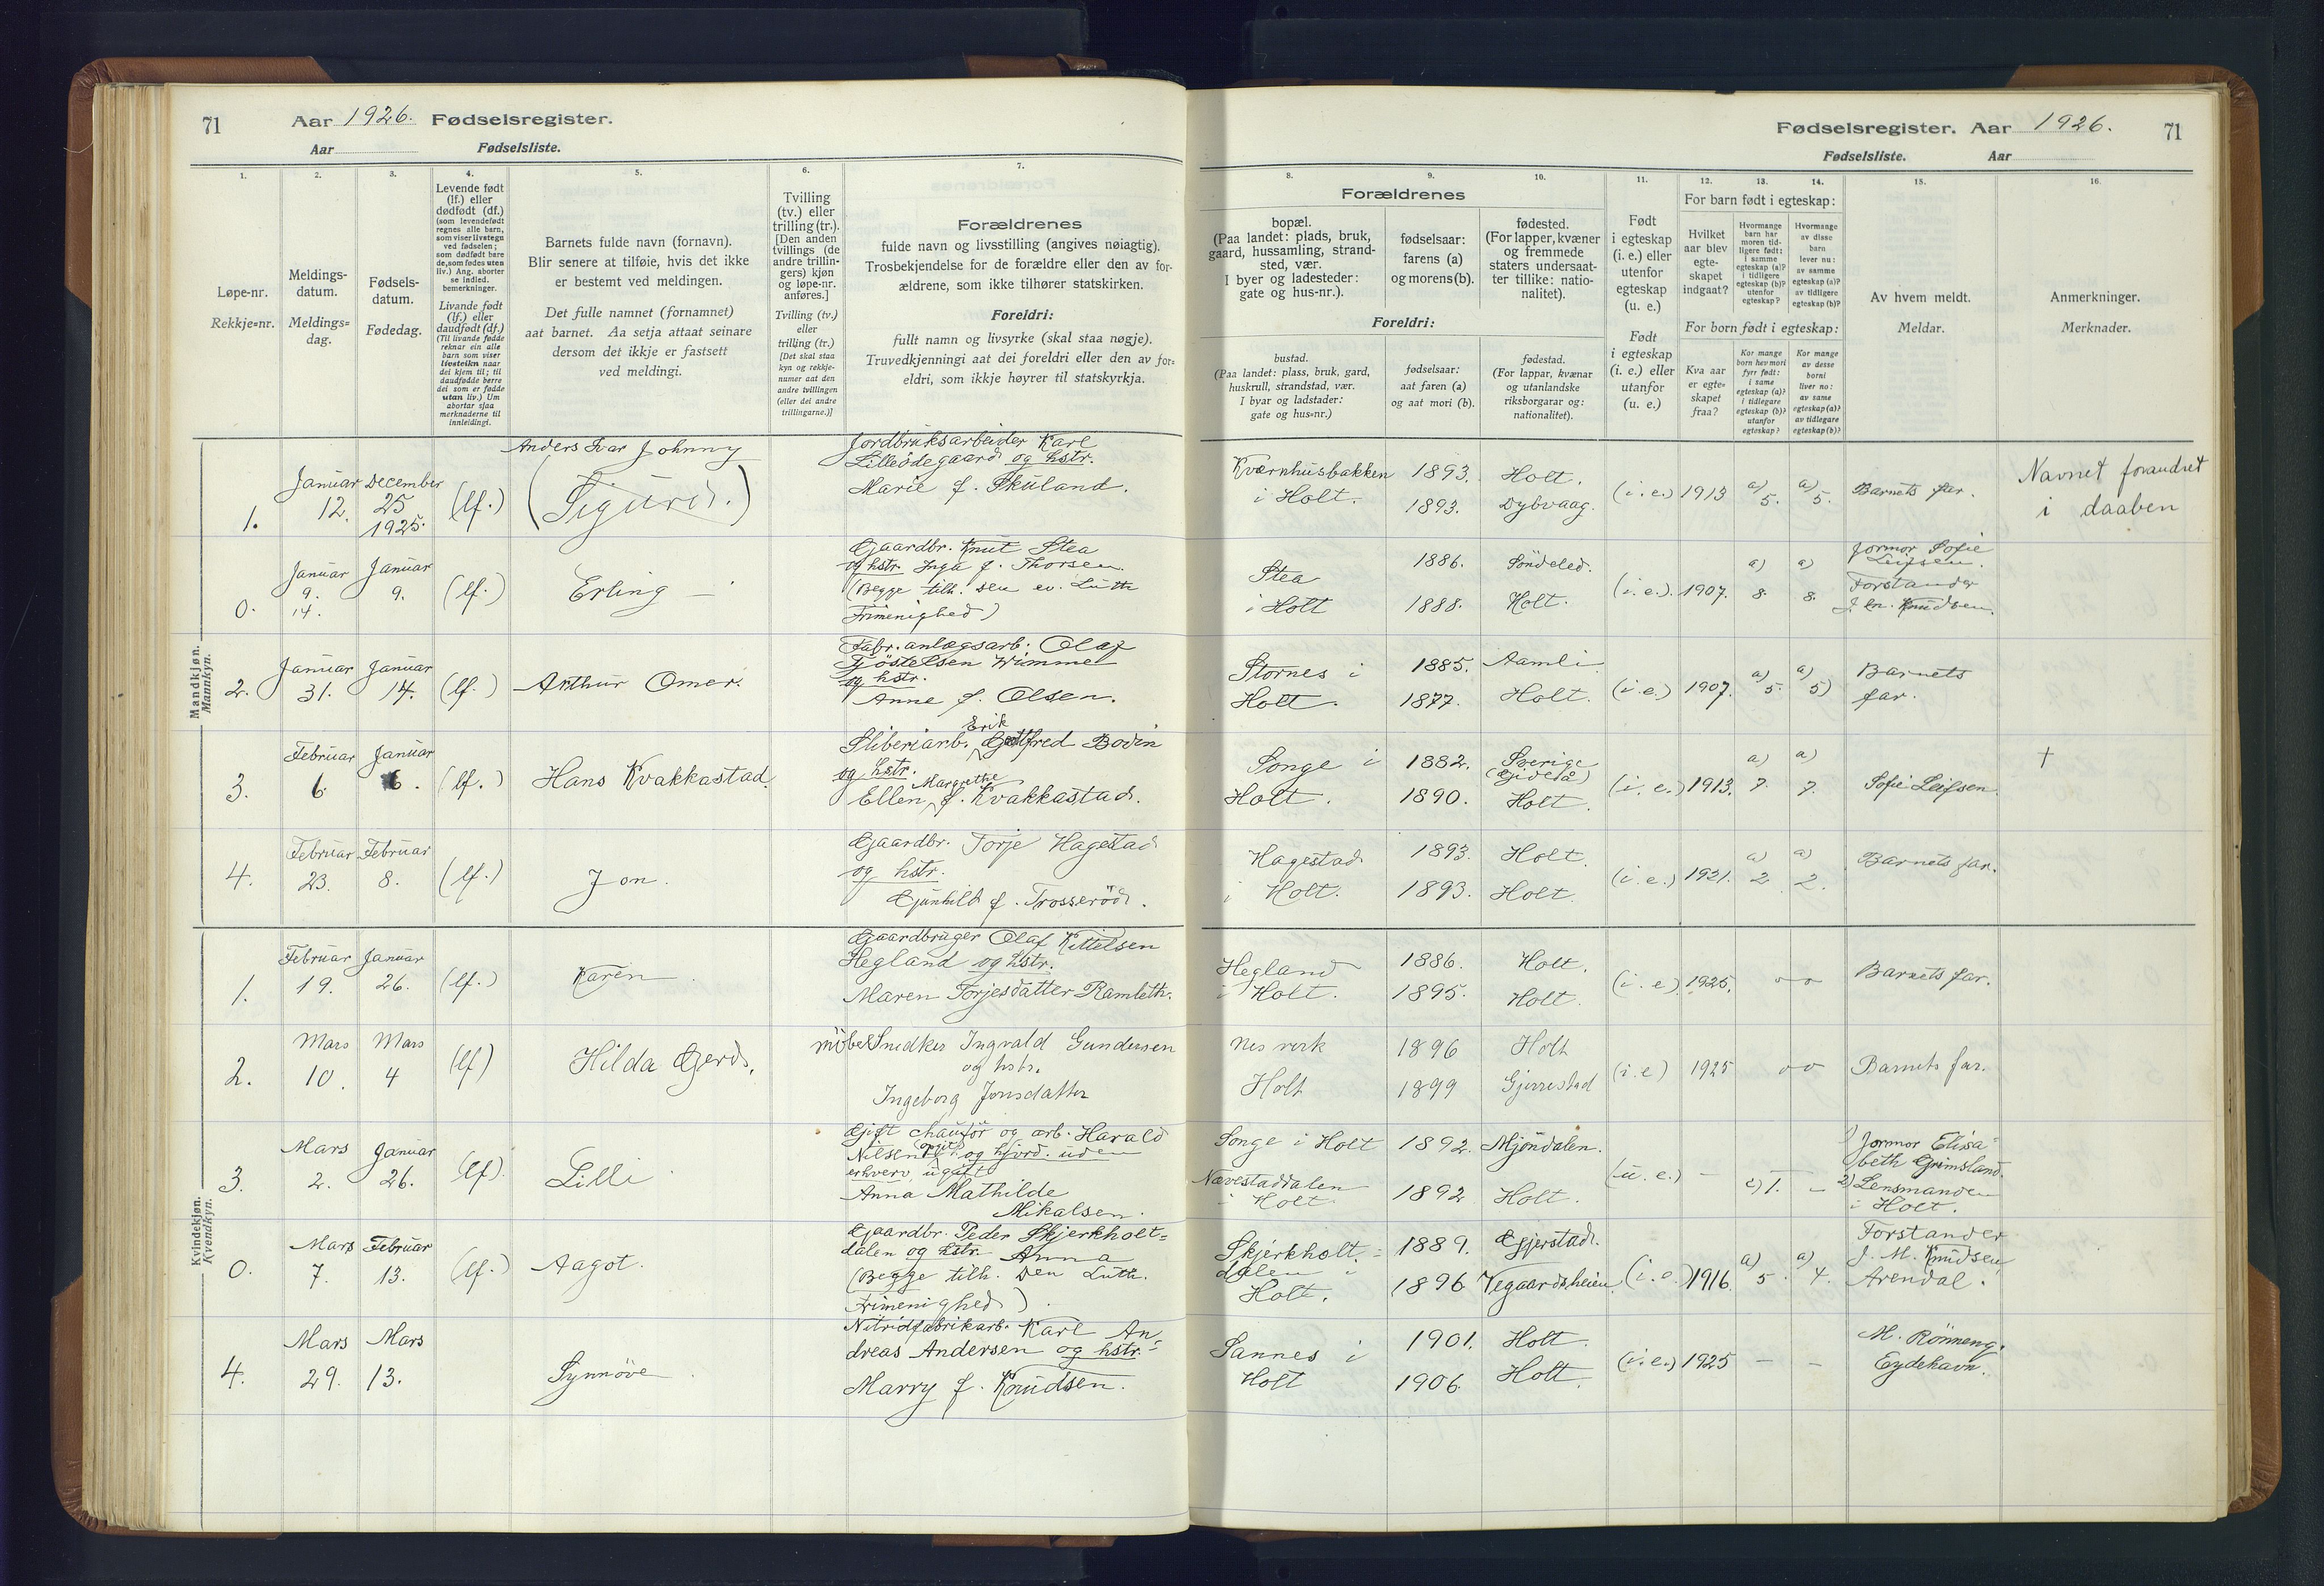 71
Aar 1926. Fødselsregister.
Aar Fødselsliste.
Fødselsregister. Aar 1926.
71
Fødselsliste. Aar
1. 2. 3. 4. 5. 6. 7.
Løpe-nr.
Rekkje=nr.
Meldings-
datum.
Meldings=
dag.
Fødsels-
datum.
Fødedag.
Levende født
(lf.) eller
dødfødt (df.)
(som levendefødt
regnes alle barn,
som viser livstegn
ved fødselen;
som dødfødt bare
de, som fødes uten
liv.) Ang. aborter
se indled.
bemerkninger.
Livande født
(lf.) eller
daudfødt (df.)
(Til livande fødde
reknar ein alle
born som viser
livsteikn naar
dei kjem til; til
daudfødde berre
dei som er fødde
utan liv.) Um
abortar sjaa
merknaderne til
innleidingi.
Barnets fulde navn (fornavn).
Blir senere at tilføie, hvis det ikke
er bestemt ved meldingen.
Det fulle namnet (fornamnet)
aat barnet. Aa setja attaat seinare
dersom det ikkje er fastsett
ved meldingi.
Tvilling
(tv.) eller
trilling (tr.).
[Den anden
tvillings (de
andre trillin-
gers) kjøn
og løpe-nr.
anføres.]
Tvilling (tv.)
eller
trilling (tr.)
[Det skal staa
kyn og rekkje-
numer aat den
andre tvillingen
(eller dei andre
trillingarne.)]
Forældrenes
fulde navn og livsstilling (angives nøiagtig).
Trosbekjendelse for de forældre eller den av for-
ældrene, som ikke tilhører statskirken.
Foreldri:
fullt namn og livsyrke (skal staa nøgje).
Truvedkjenningi aat dei foreldri eller den av for=
eldri, som ikkje høyrer til statskyrkja.
8. 9. 10. 11. 12. 13. 14. 15. 16.
Forældrenes
bopæl.
(Paa landet: plads, bruk,
gaard, hussamling, strand-
sted, vær.
I byer og ladesteder:
gate og hus-nr.).
fødselsaar:
farens (a)
og morens (b).
fødested.
(For lapper, kvæner
og fremmede
staters undersaat-
ter tillike: natio-
nalitet).
Foreldri:
bustad.
(Paa landet: plass, bruk, gard,
huskrull, strandstad, vær.
I byar og ladstader:
gate og hus=nr.)
fødselsaar:
aat faren (a)
og aat mori (b).
fødestad.
(For lappar, kvænar
og utanlandske
riksborgarar og:
nationalitet).
Født
i egteskap
(i. e.) eller
utenfor
egteskap
(u. e.)
Født
i egteskap
(i. e.) eller
utanfor
(u. e.)
For barn født i egteskap:
Hvilket
aar blev
egte-
skapet
indgaat?
Hvormange
barn har
moren tid-
ligere født:
i samme
egteskap (a)?
i tidligere
egteskap (b)?
utenfor
egteskap?
Hvormange
av disse
barn
lever nu:
av samme
egteskap (a)?
av tidligere
egteskap (b)?
For born født i egteskap:
Kva aar
er egte=
skapet
fraa?
Kor mange
born hev mori
fyrr født:
i same
egteskap (a)?
i tidlegare
egteskap (b)?
utanfor
egteskap?
Kor mange
av desse
borni
liver no:
av same
egteskap (a)?
av tidlegare
egteskap (b)?
Av hvem meldt.
Meldar.
Anmerkninger.
Merknader.
Mandkjøn.
Mannkyn.
1. Januar 12. December 25 1925. (lf.)
Anders Ivar Johnny
(Sigurd.)
Jordbruksarbeider Karl
Lilleödegaard og hstr.
Marie f. Skuland.
Kværnhusbakken
i Holt.
1893.
1893.
Holt.
Dybvaag.
(i.e.) 1913 a) 5. a) 5. Barnets far.
Navnet forandret
i daaben
0. Januar 9. 14. Januar 9. (lf.) Erling –
Gaardbr. Knut Stea
og hstr. Inga f. Thorsen.
(Begge tilh. den ev. Luth
Frimenighed)
Stea
i Holt
1886.
1888.
Söndeled.
Holt.
(i.e.). 1907. a) 8. a) 8.
Jormor Sofie
Leifsen.
Forstander
J. Knudsen.
2. Januar 31. Januar 14. (lf.) Arthur Omer.
Fabr. anlægsarb. Olaf
Fjöstelsen Wimme
og hstr.
Anne f. Olsen.
Stornes i
Holt.
1885.
1877.
Aamli
Holt.
(i.e.) 1907. a) 5. a) 5)
Barnets
far.
3. Februar 6. Januar 6. (lf.) Hans Kvakkastad.
Erik
Sliberiarb. Gottfred Bodin
og hstr.
Margrethe
Ellen f. Kvakkastad.
Songe i
Holt.
1882.
1890.
Sverige
Holt.
(i.e.) 1913. a) 7. a) 7. Sofie Leifsen.
†
4. Februar 23. Februar 8. (lf.) Jon.
Gaardbr. Torje Hagestad
og hstr.
Gunhild f. Trosseröd.
Hagestad
i Holt.
1893.
1893.
Holt.
Holt.
(i.e.) 1921. a) 2 a) 2. Barnets far.
Kvindekjøn.
Kvendkyn.
1. Februar 19. Januar 26. (lf.) Karen.
Gaardbruger Olaf Kittelsen
Hegland og hstr.
Maren Torjesdatter Ramleth.
Hegland
i Holt.
1886.
1895.
Holt.
Holt.
(i.e.) 1925. o o Barnets far.
2. Mars 10. Mars 4 (lf) Hilda Gerd.
möbelSnedker Ingvald Gundersen
og hstr.
Ingeborg Jonsdatter
Nes verk
Holt
1896
1899
Holt
Gjerrestad
(i.e) 1925 o o Barnets far.
3. Mars 2. Januar 26. (lf). Lilli
Gift chaufför og arb. Harald
Nilsen og hjord. uden
erhverv, ugift
Anna Mathilde
Mikalsen.
Songe i Holt
Nævestaddalen
i Holt
1892.
1892
Mjöndalen.
Holt.
(u.e.) – c) 1. –
1) Jormor Elisa-
beth Grimsland.
2) Lensmanden
i Holt.
0. Mars 7. Februar 13. (lf.) Aagot.
Gaardbr. Peder Skjerkholt=
dalen og hstr. Anna
(Begge tilh. Den Luth.
Frimenighed)
Skjerkholt=
dalen i
Holt.
1889.
1896
Gjerstad.
Vegaardsheien.
(i.e.) 1916. a) 5. a) 4.
Forstander
J. M. Knudsen
Arendal.
4. Mars 29. Mars 13. Synnöve.
Nitridfabrikarb. Karl An=
dreas Andersen og hstr.
Marry f. Knudsen.
Sannes i
Holt
1901.
1906.
Holt.
Holt.
(i.e.) 1925 – –
M. Rönneng.
Eydehavn.